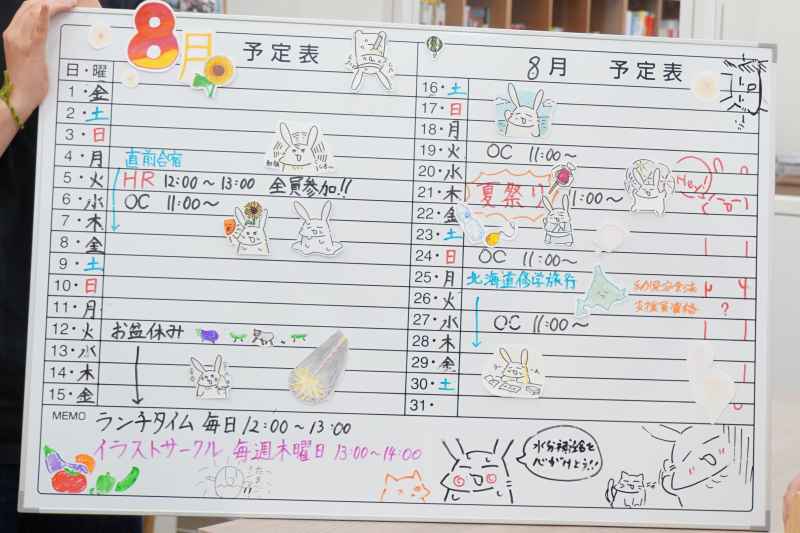 8月 予定表
日・曜
1・金
2・土
3・日
4・月 直前合宿
5・火 HR 12:00～13:00 全員参加!!
6・水 OC 11:00～
7・木
8・金
9・土
10・日
11・月
12・火 お盆休み
13・水
14・木
15・金
8月 予定表
16・土
17・日
18・月
19・火 OC 11:00～
20・水
21・木 夏祭り 11:00～
Hey!
22・金
23・土
24・日 OC 11:00～
25・月 北海道修学旅行
26・火
27・水 OC 11:00～
28・木
29・金
30・土
31・
MEMO
ランチタイム 毎日 12:00～13:00
イラストサークル 毎週木曜日 13:00～14:00
水分補給を
心がけよう!!